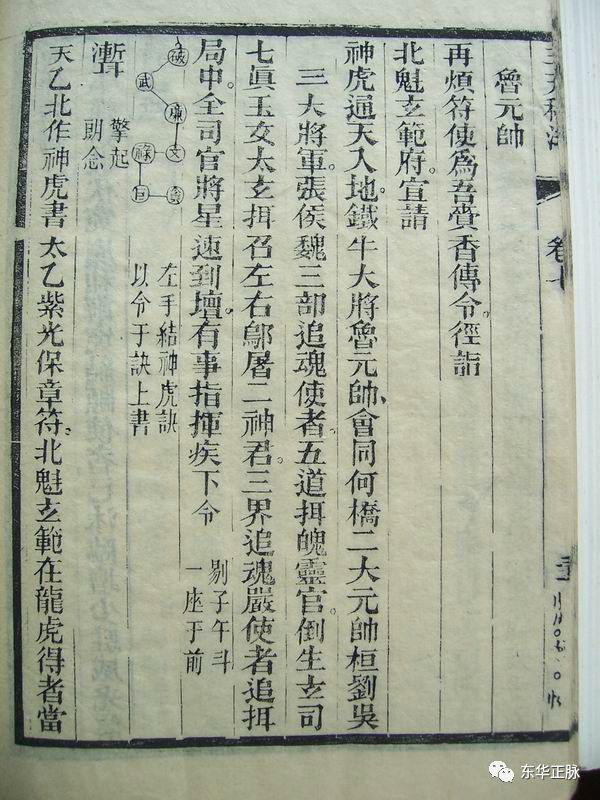 卷
魯元帥
再煩符使爲吾賫香傳令徑詣
北魁玄範府。宣請
神虎通天入地。鐵牛大將魯元帥、會同何橋二大元帥桓劉吳
三大將軍。張侯魏三部追魂使者。五道挕魄靈官。倒生玄司
七眞玉女太玄挕召左右鄔屠二神君。三界追魂嚴使者追挕
局中。全司官將星速到壇。有事指揮疾下令
剔子午斗
一座于前
破
武 廉 文
祿 巨 貪
左手結神虎訣
以令于訣上書
聻
擎起
即念
天乙北作神虎書 太乙紫光保章符。北魁玄範在龍虎得者當
东华正脉